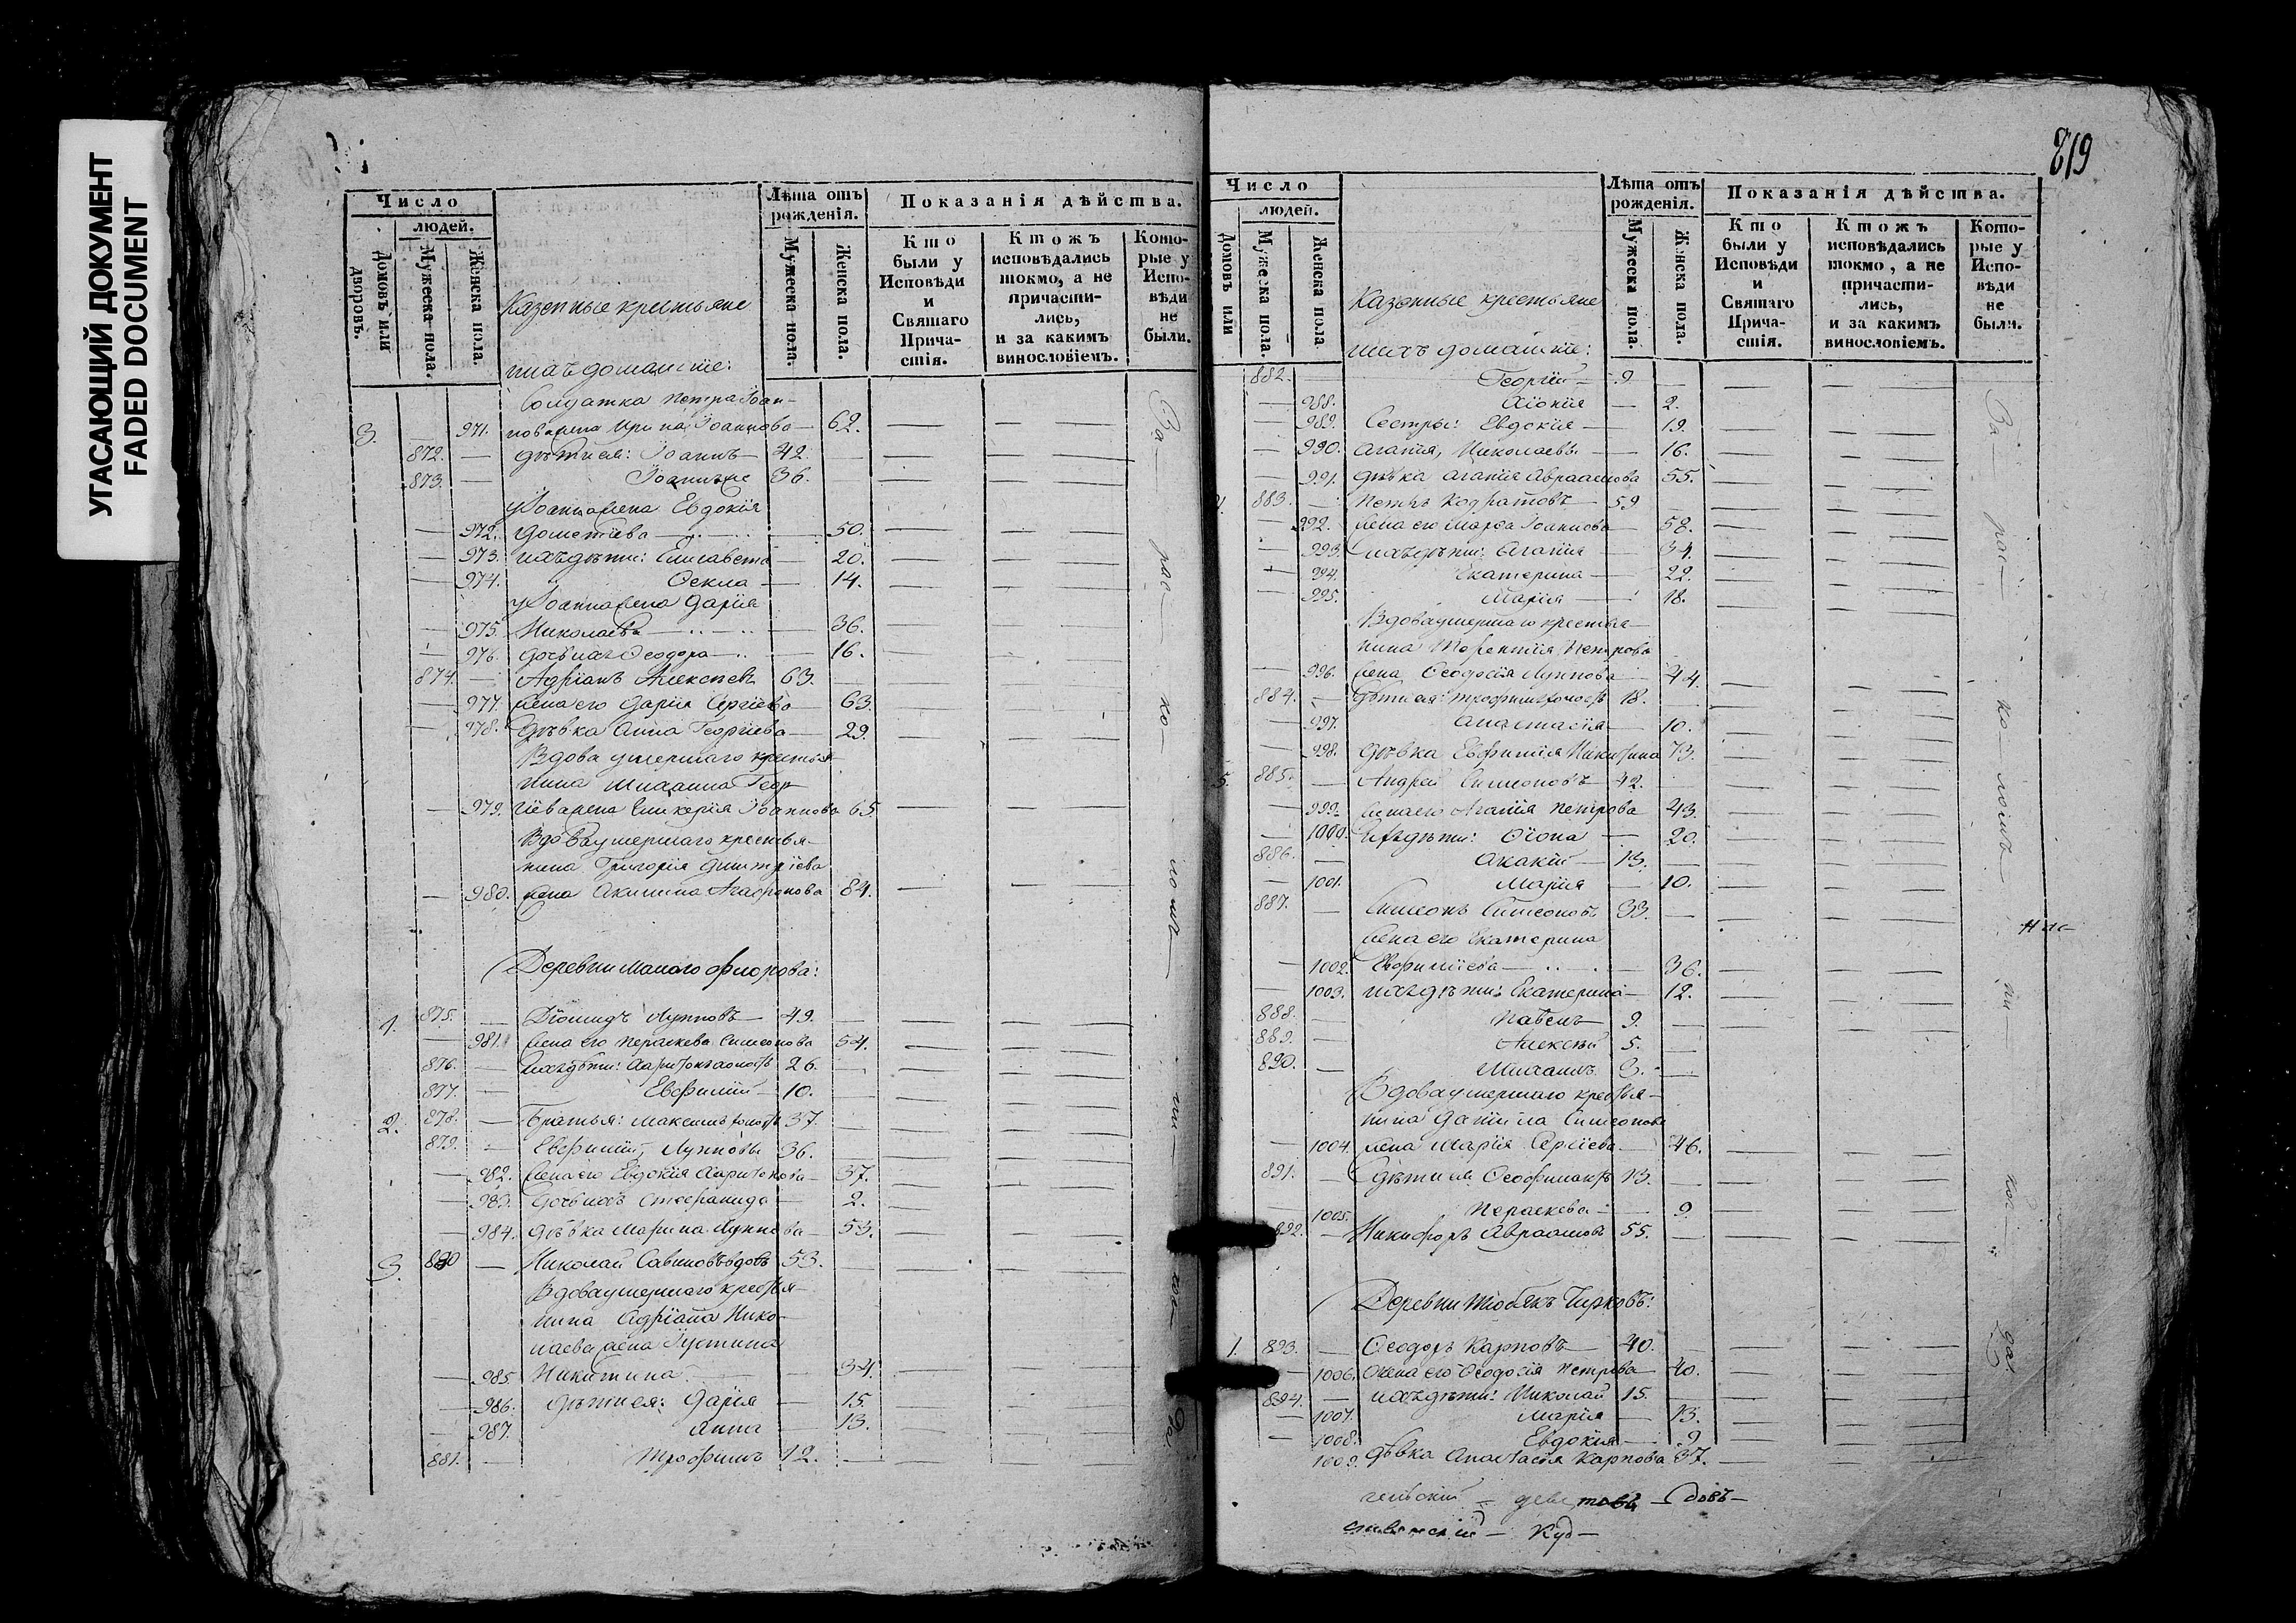 УГАСАЮЩИЙ ДОКУМЕНТ
FADED DOCUMENT
Число
людей.
Домовъ или дворовъ.
Мужеска пола.
Женска пола.
Казенные крестьяне
и ихъ домашніе:
Лѣта отъ рожденія.
Мужеска пола.
Женска пола.
Показанія дѣйства.
Кто были у Исповѣди и Святаго Причастія.
Ктожъ исповѣдались токмо, а не причастились, и за какимъ винословіемъ.
Которые у Исповѣди не были.
Солдатка Петра Іоан-
3. — 971. нова жена Ирина Іоаннова — 62.
872. — дѣти ея: Іоаннъ — 42.
873. — Іоаннъ же 36.
у Іоанна жена Евдокія
— 972. Дометіева — 50.
— 973. ихъ дѣти: Елисавета — 20.
— 974. Ѳекла — 14.
у Іоанна жена Дарія
— 975. Николаева — 36.
— 976. дочь ихъ Ѳеодора — 16.
874. — Адріанъ Алексѣевъ 63.
— 977. жена его Дарія Сергіева — 63.
— 978. Дѣвка Анна Георгіева — 29.
Вдова умершаго крестья-
нина Михаила Геор-
— 979. гіева жена Гликерія Іоаннова 65.
Вдова умершаго крестья-
нина Григорія Димитріева
— 980. жена Акилина Агафонова 84.
Деревни Малаго Фролова:
1. 875. — Діомидъ Лупповъ — 49.
— 981. жена его Параскева Симеонова 54.
876. — ихъ дѣти: Харитонъ холостъ 26.
877. — Евфимій — 10.
2. 878. — Братья: Максимъ холостъ 37.
879. — Евфимій, Лупповы 36.
— 982. жена его Евдокія Харитонова — 37.
— 983. дочь ихъ Стефанида — 2.
— 984. дѣвка Марина Луппова — 53.
3. 880 — Николай Савиновъ вдовъ 53.
Вдова умершаго крестья-
нина Адріана Нико-
лаева жена Іустина
— 985 Никитина — 34.
— 986. дѣти ея: Дарія — 15.
— 987. Анна — 13.
881. — Трофимъ 12. —
За рас ко ломъ ни ко да
819
Число
людей.
Домовъ или
Мужеска пола.
Женска пола.
Казенные крестьяне
и ихъ домашніе:
Лѣта отъ рожденія.
Мужеска пола.
Женска пола.
Показанія дѣйства.
Кто были у Исповѣди и Святаго Причастія.
Ктожъ исповѣдались токмо, а не причастились, и за какимъ винословіемъ.
Которые у Исповѣди не были.
882. — Георгій — 9 —
— 988. Хіонія — 2.
— 989. Сестры: Евдокія — 19.
— 990. Агапія, Николаевы — 16.
— 991. дѣвка Агапія Авраамова 55.
883. — Петръ Кодратовъ — 59
— 992. жена его Марѳа Іоаннова — 58.
— 993. ихъ дѣти: Агапія — 34.
— 994. Екатерина — 22.
— 995. Марія — 18.
Вдова умершаго крестья-
нина Терентія Петрова
— 996. жена Ѳеодосія Луппова 44.
884. — дѣти ея: Трофимъ холостъ 18. —
— 997. Анастасія — 10.
— 998. дѣвка Евфимія Никитина 73.
5. 885. — Андрей Симеоновъ — 42.
— 999. жена его Агапія Петрова 43.
— 1000. ихъ дѣти: Хіона — 20.
886. — Акакій — 13. —
— 1001. Марія — 10.
887. — Симеонъ Симеоновъ 33. —
жена его Екатерина
— 1002. Евфиміева — 36.
— 1003. ихъ дѣти: Екатерина — 12.
888. — Павелъ 9. —
889. — Алексѣй 5. —
890. — Михаилъ 3. —
Вдова умершаго крестья-
нина Даніила Симеонова
— 1004. жена Марія Сергіева — 46.
891. — дѣти ея: Ѳеофилактъ 13. —
1005. Параскева — 9.
892. — Никифоръ Авраамовъ 55. —
Деревни Тюбякъ Чирковъ:
1. 893. — Ѳеодоръ Карповъ — 40. —
— 1006. Жена его Ѳеодосія Петрова 40.
894. — ихъ дѣти: Николай 15. —
— 1007. Марія — 13.
— 1008. Евдокія — 9
1009. дѣвка Анастасія Карпова 37.
За рас ко ломъ ни ко да